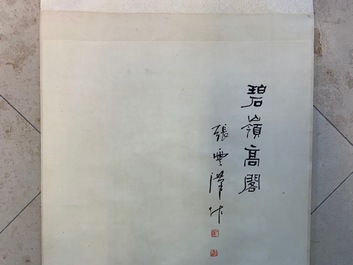 碧嶺高閣
張雲漢作